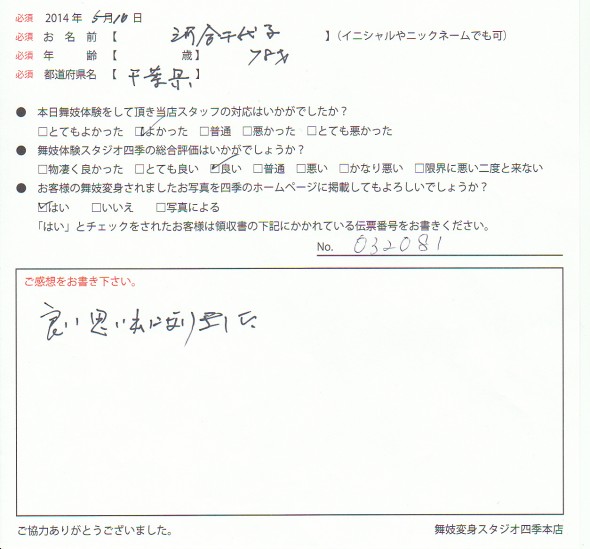 必須 2014年 5月10日
必須 お名前【 河合千代子 】(イニシャルやニックネームでも可)
必須 年齢【 歳】 78才
必須 都道府県名【 千葉県 】
● 本日舞妓体験をして頂き当店スタッフの対応はいかがでしたか?
□とてもよかった ☑よかった □普通 □悪かった □とても悪かった
● 舞妓体験スタジオ四季の総合評価はいかがでしょうか?
□物凄く良かった □とても良い ☑良い □普通 □悪い □かなり悪い □限界に悪い二度と来ない
● お客様の舞妓変身されましたお写真を四季のホームページに掲載してもよろしいでしょうか?
☑はい □いいえ □写真による
「はい」とチェックをされたお客様は領収書の下記にかかれている伝票番号をお書きください。
No. 032081
ご感想をお書き下さい。
良い思い出になりました
ご協力ありがとうございました。
舞妓変身スタジオ四季本店